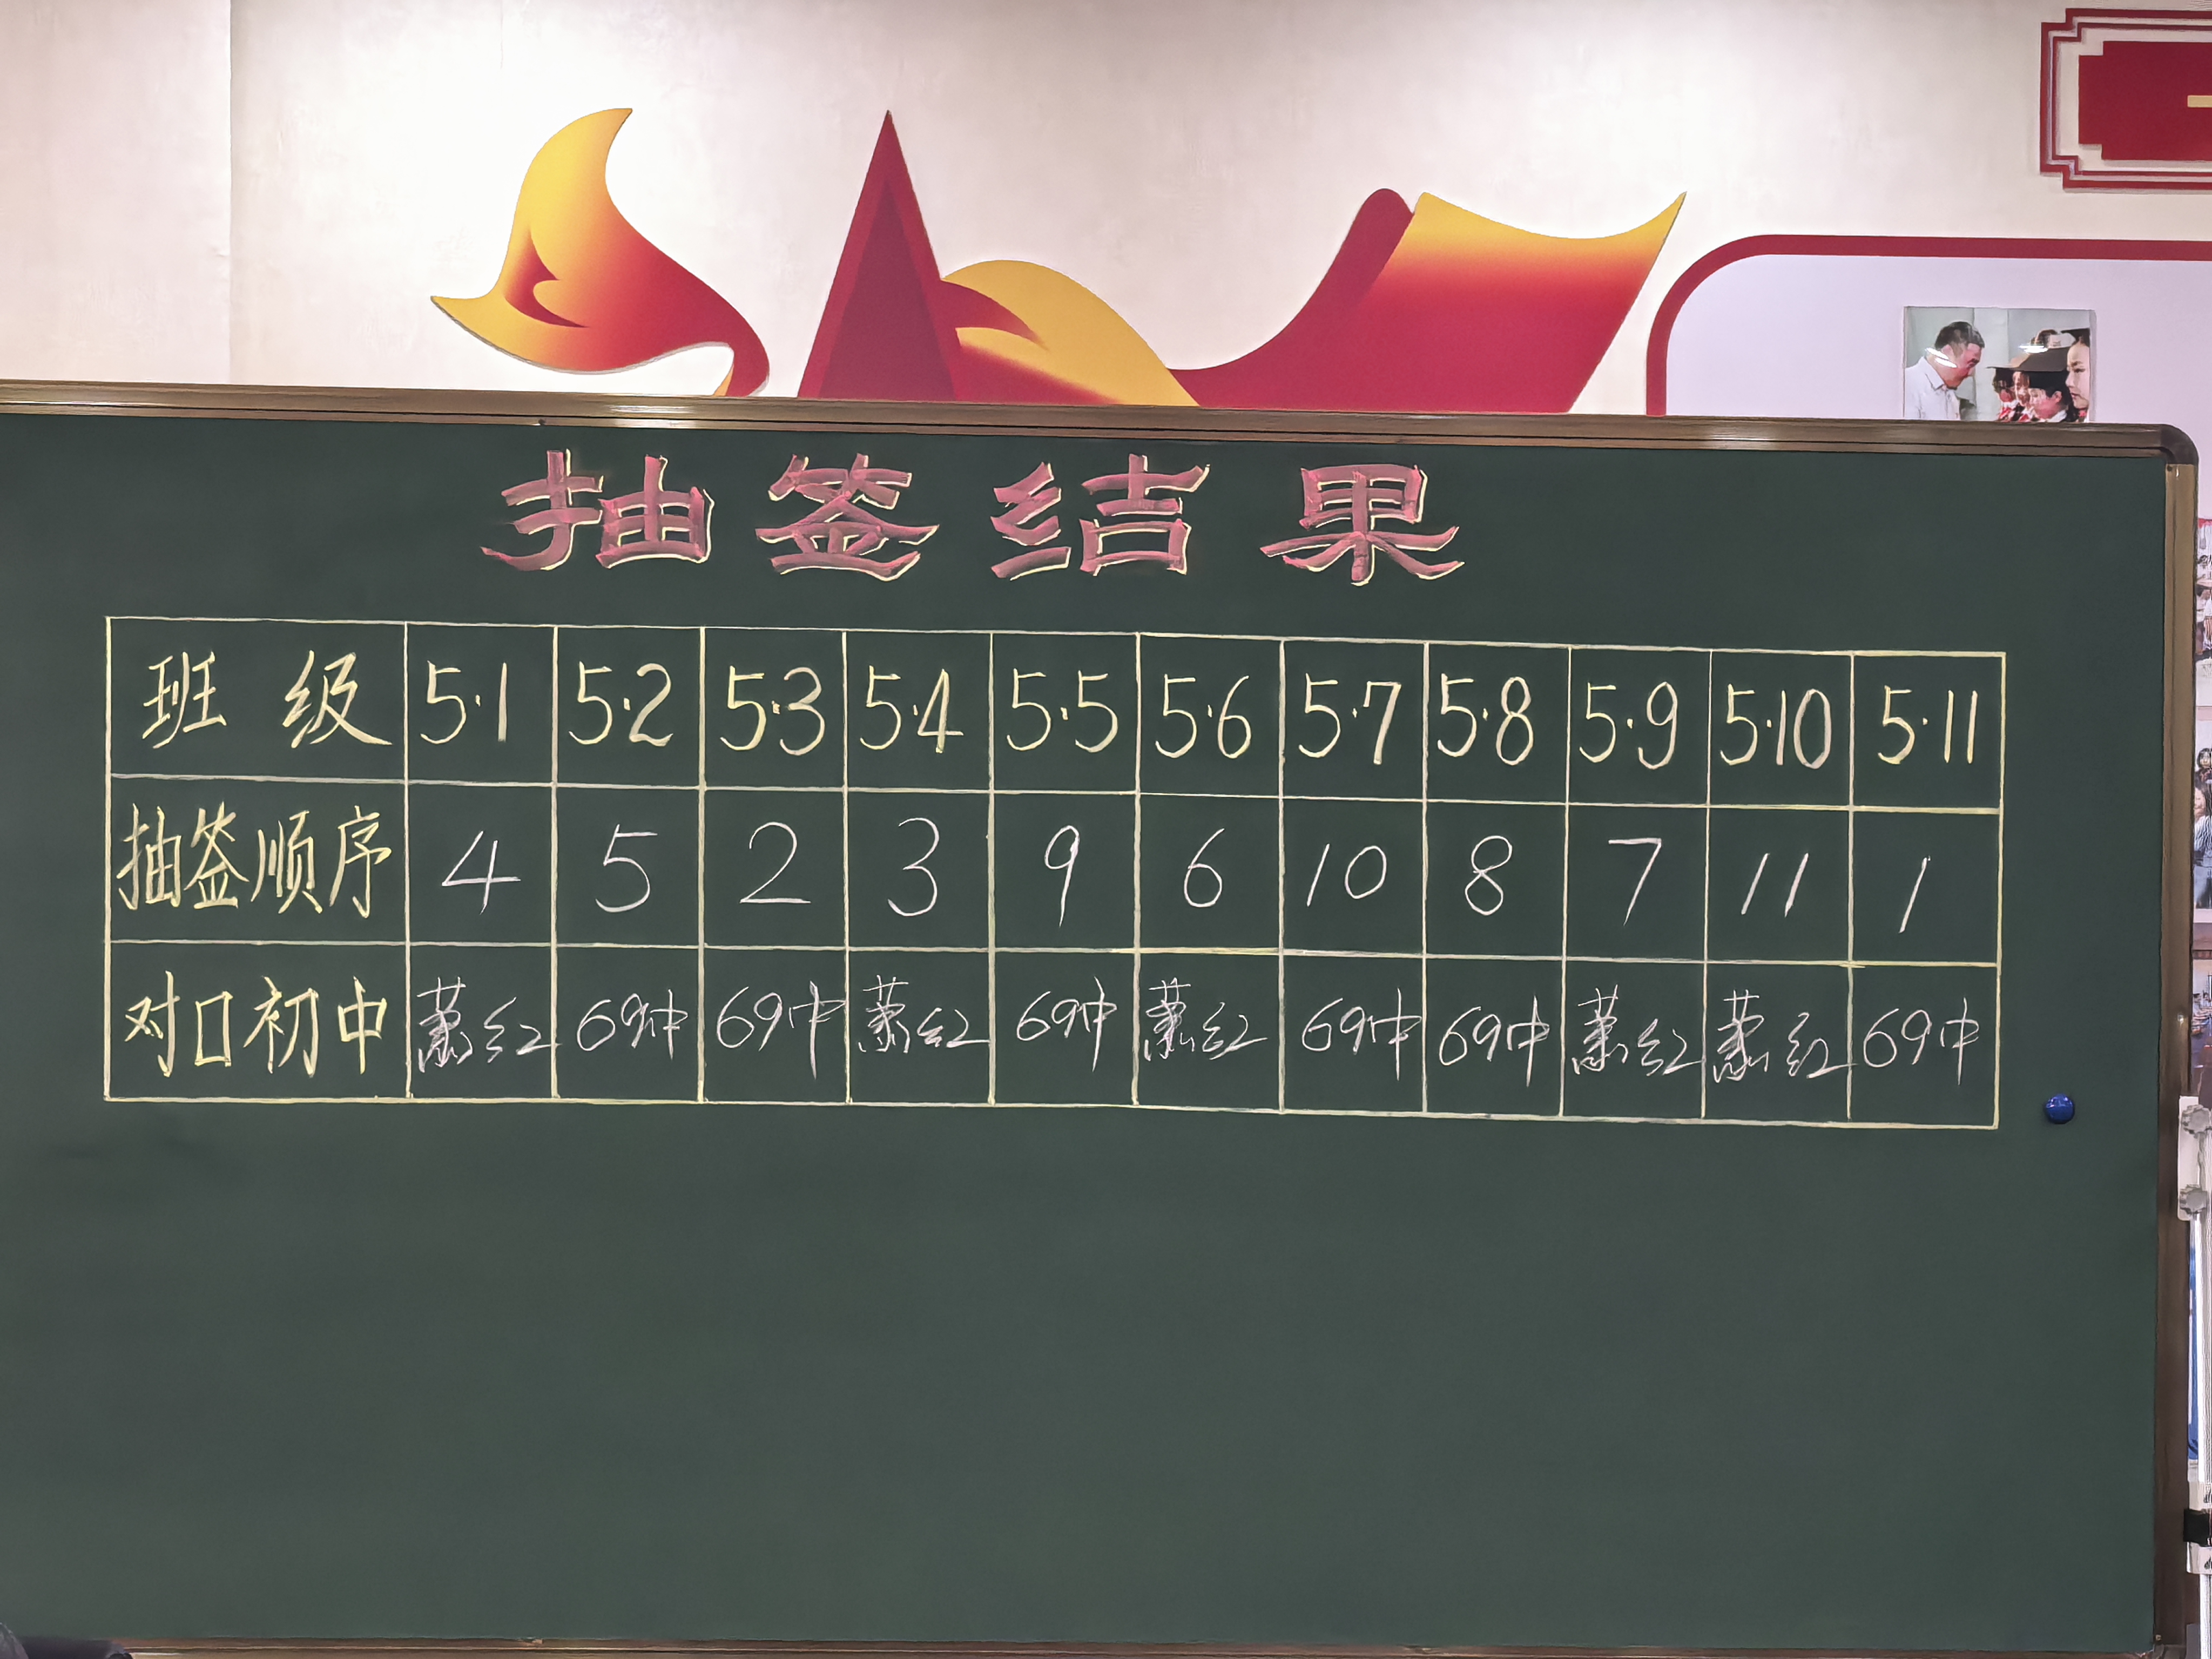 抽签结果
班级 5·1 5·2 5·3 5·4 5·5 5·6 5·7 5·8 5·9 5·10 5·11
抽签顺序 4 5 2 3 9 6 10 8 7 11 1
对口初中 萧红 69中 69中 萧红 69中 萧红 69中 69中 萧红 萧红 69中